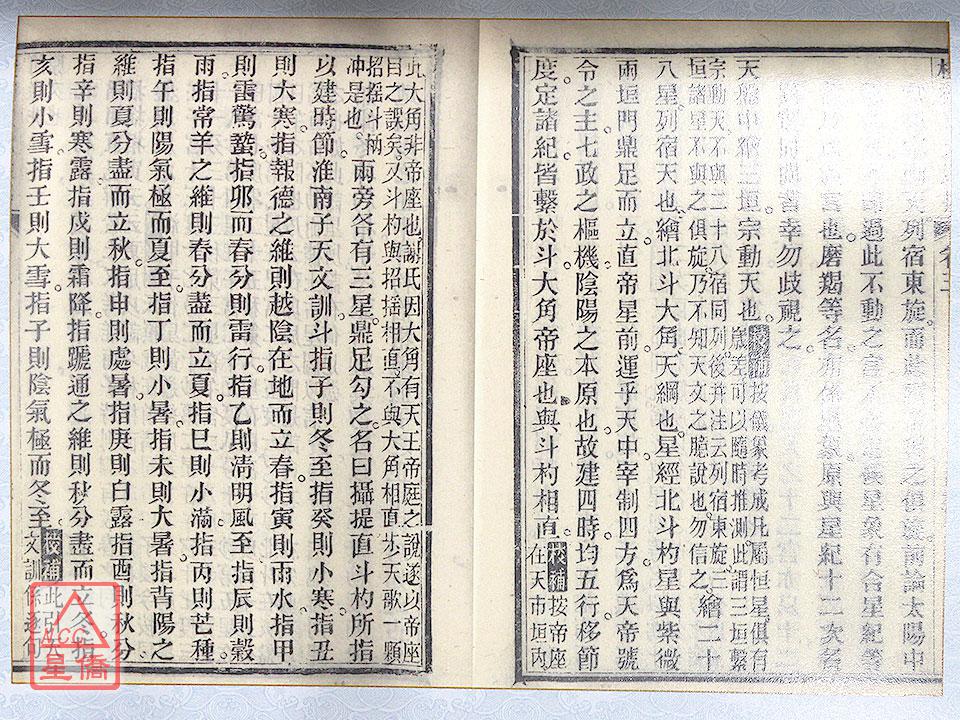 列宿東旋而
之俱旋前論太陽中
過此不動之
星象有合星紀等
宫也磨羯等名亦係
象原與星紀十二次名
皆幸勿歧視之
天盤中繪三垣宗動天也校補按儀象考成凡屬恒星俱有
歲差可以隨時推測此謂三垣繫
宗動天不與二十八宿同列後并注云列宿東旋三
垣諸星不與之俱旋乃不知天文之臆說也勿信之繪二十
八星列宿天也繪北斗大角天綱也星經北斗杓星與紫微
兩垣門鼎足而立直帝星前運乎天中宰制四方爲天帝號
令之主七政之樞機陰陽之本原也故建四時均五行移節
度定諸紀皆繫於斗大角帝座也與斗杓相直校補按帝座
在天市垣內
此大角非帝座也謝氏因大角有天王帝庭之說遂以帝座
目之誤矣又斗杓與招搖相直不與大角相直步天歌一顆
招搖斗柄
冲是也兩旁各有三星鼎足勾之名曰攝提直斗杓所指
以建時節淮南子天文訓斗指子則冬至指癸則小寒指丑
則大寒指報德之維則越陰在地而立春指寅則雨水指甲
則雷驚蟄指卯而春分則雷行指乙則清明風至指辰則穀
雨指常羊之維則春分盡而立夏指巳則小滿指丙則芒種
指午則陽氣極而夏至指丁則小暑指未則大暑指背陽之
維則夏分盡而立秋指申則處暑指庚則白露指酉則秋分
指辛則寒露指戍則霜降指蹏通之維則秋分盡而立冬指
亥則小雪指壬則大雪指子則陰氣極而冬至校補此引天
文訓係逐句
NCC
星僑